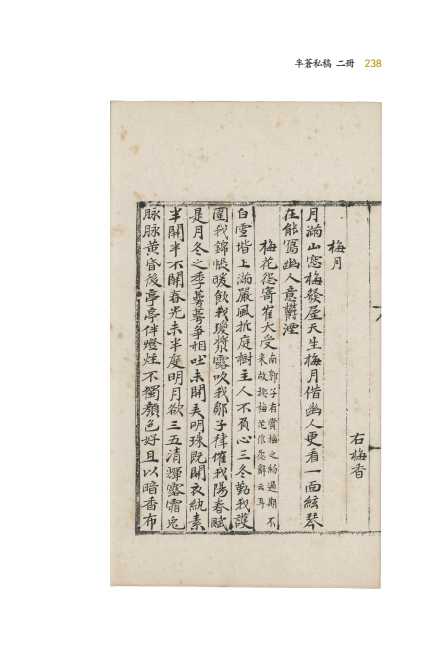 半蒼私稿 二冊 238
右梅香
梅月
月滿山窓梅發屋天生梅月偕幽人更看一面絃琴
在能寫幽人意欝湮
梅花怨寄崔大受
南郭子有賞梅之約過期不
來故托梅花作怨辭云耳
白雪堦上滿嚴風折庭樹主人不負心三冬勤我護
圍我錦帳暖飲我瓊漿露吹我鄒子律催我陽春賦
是月冬之季蕚蕚爭相吐未開美明珠旣開衣紈素
半開半不開春光未半度明月欲三五淸輝露霜兎
脉脉黃昏後亭亭伴燈炷不獨顔色好且以暗香布